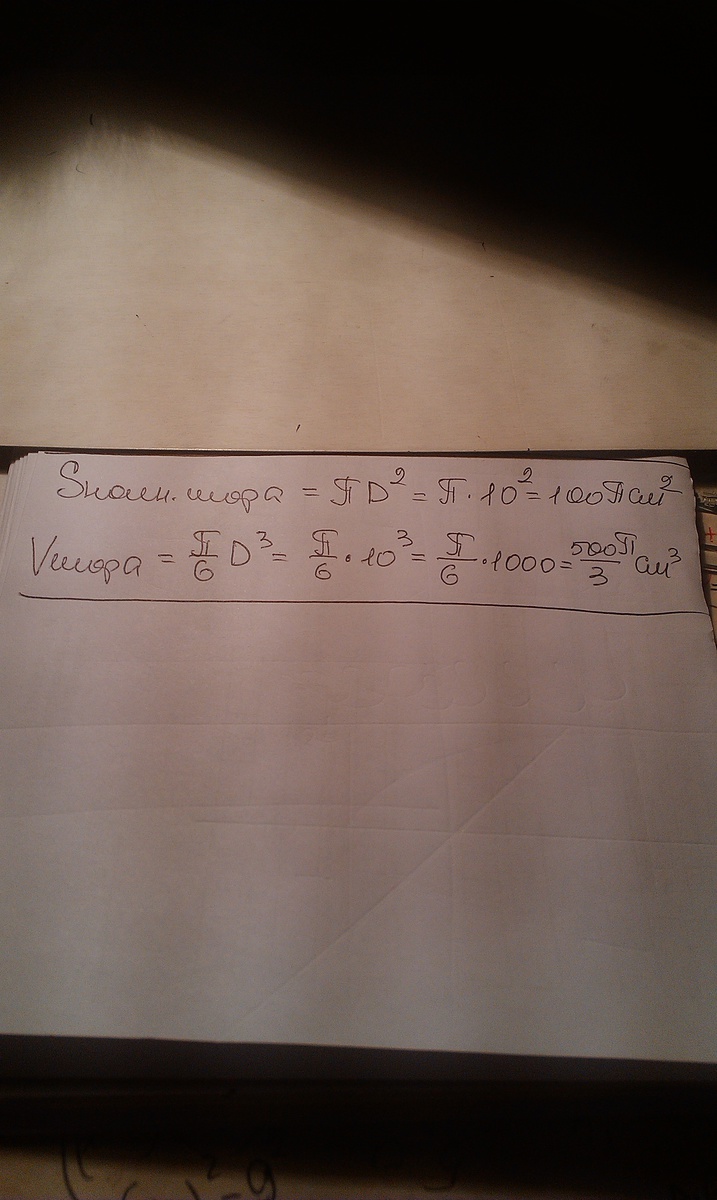 Sполн. шора = πD² = π · 10² = 100π см²
Vшора = π/6 D³ = π/6 · 10³ = π/6 · 1000 = 500π/3 см³
)² - 9